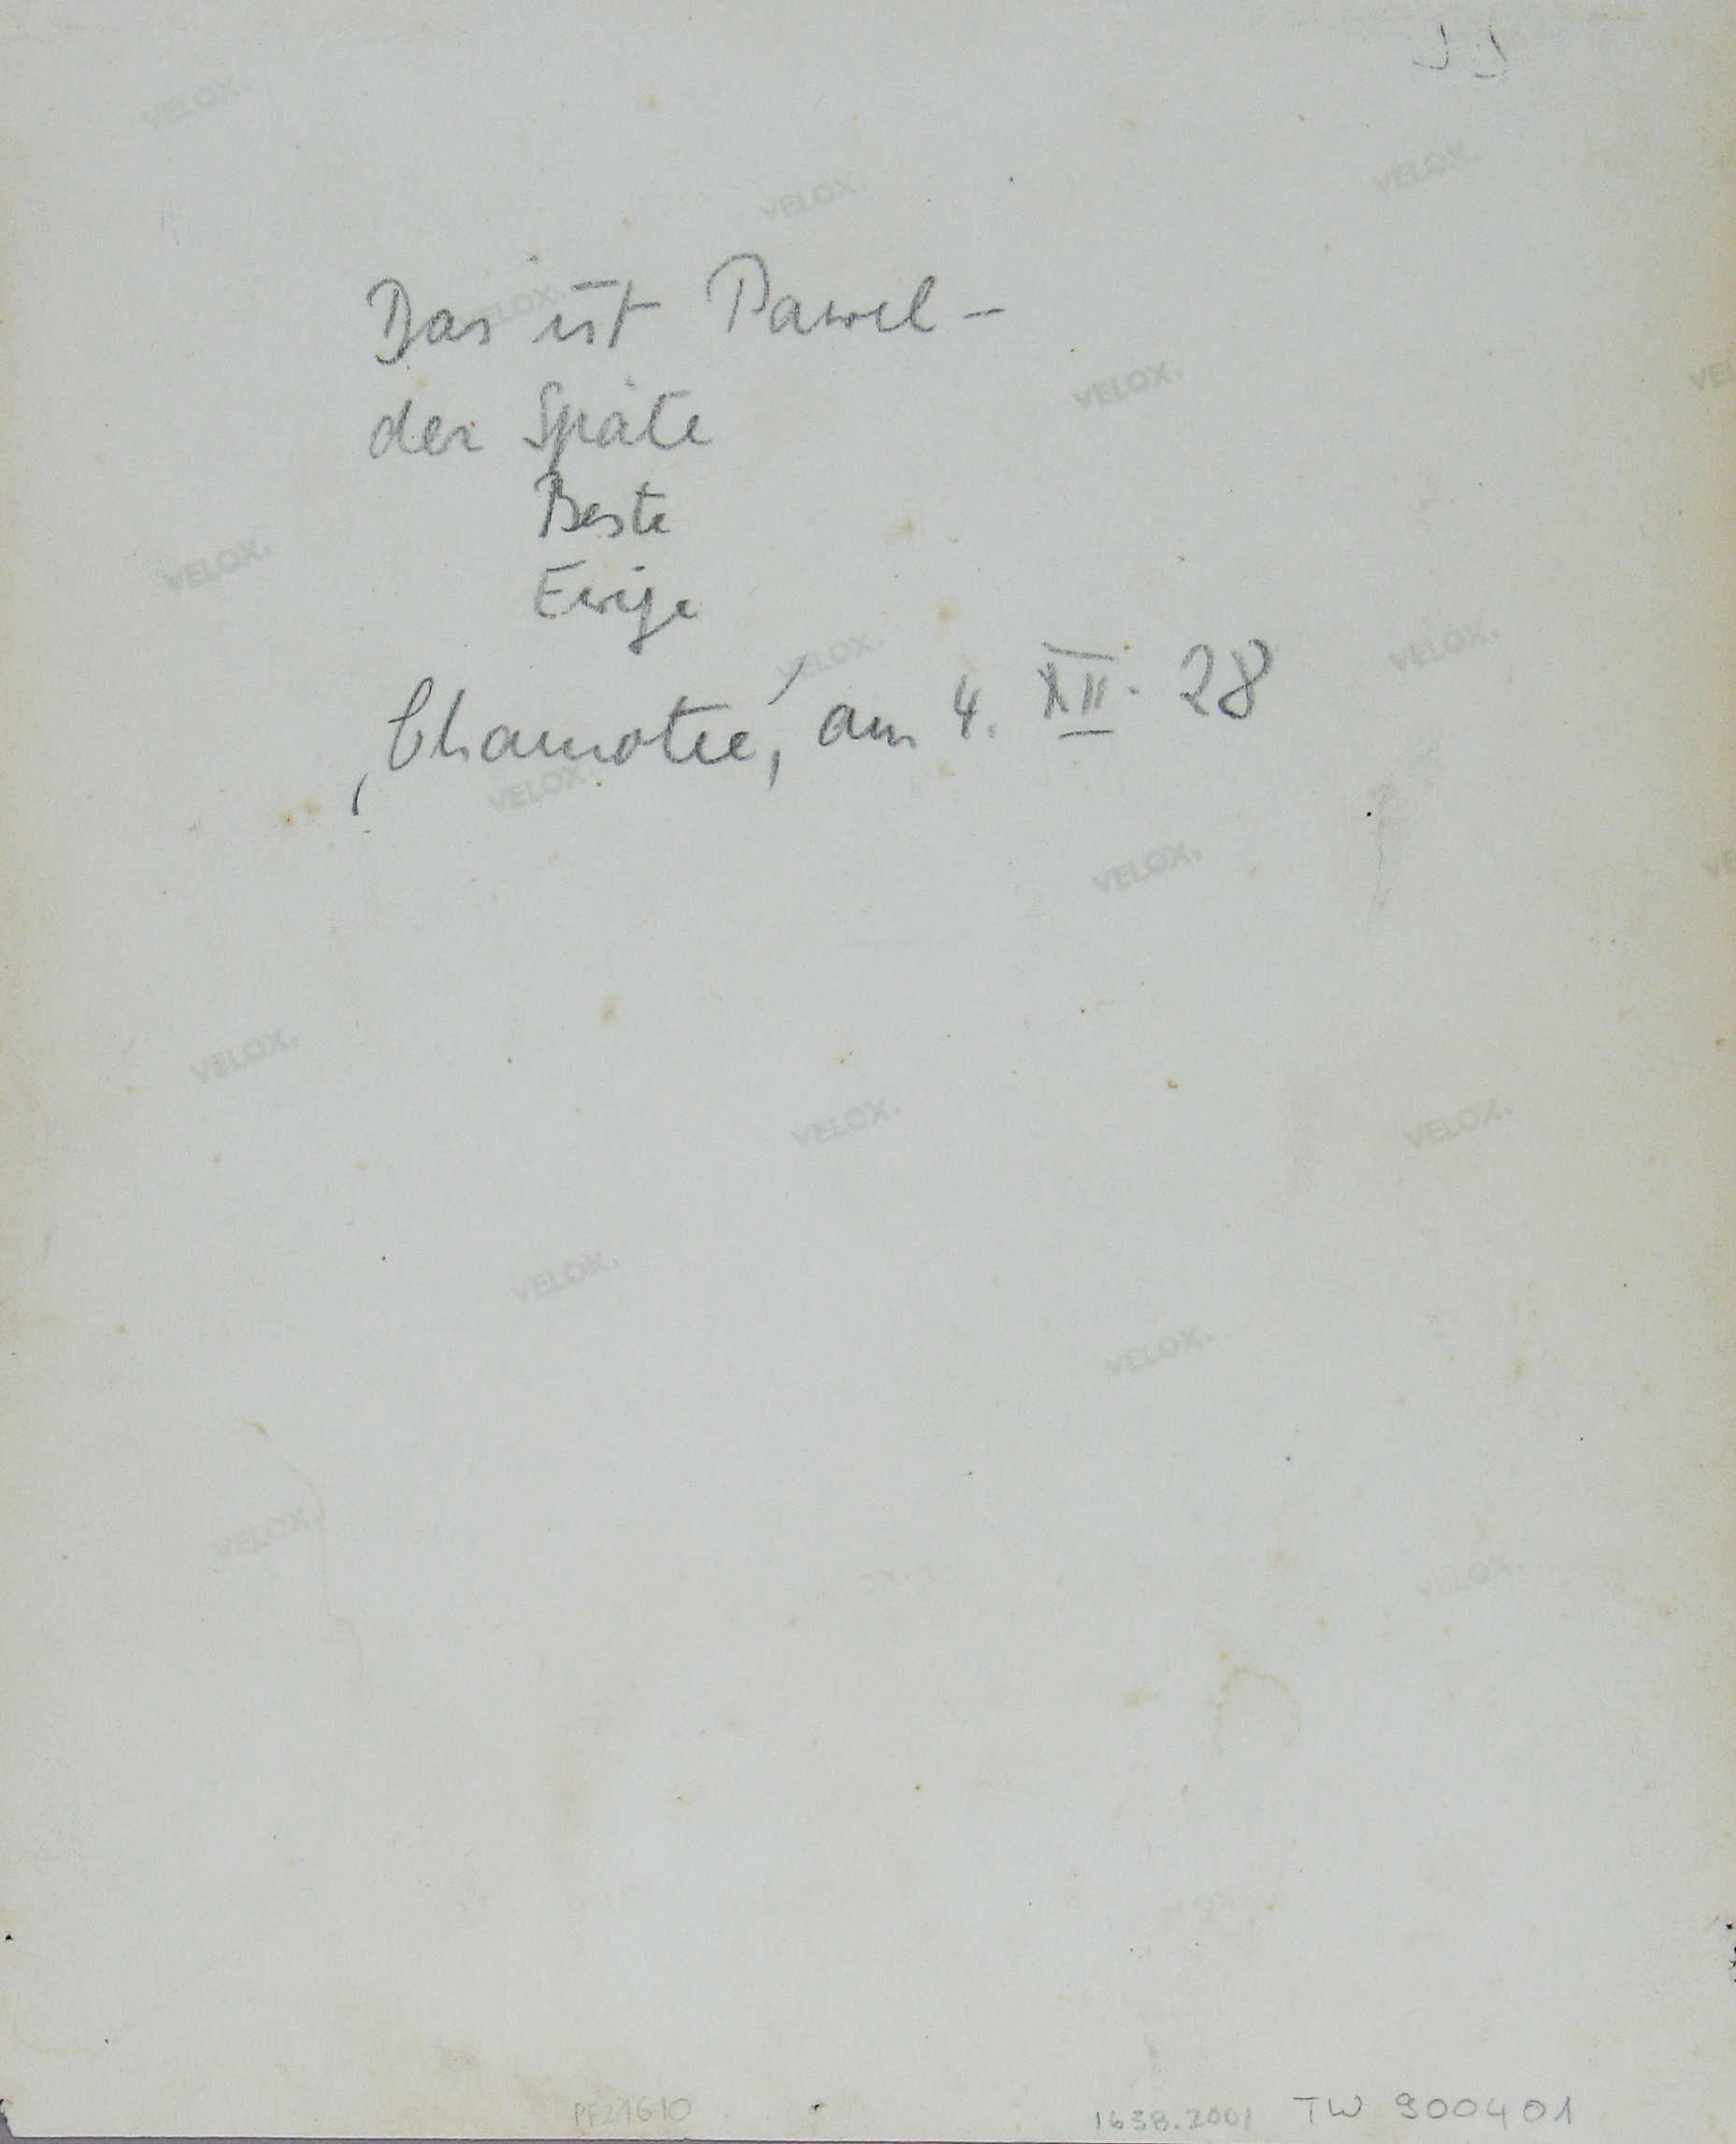 Das ist Pawel –
der Späte
Beste
Ewige
‚Chamotte', am 4. XII. 28
VELOX.
PF21610
1638.2001
TW 900401